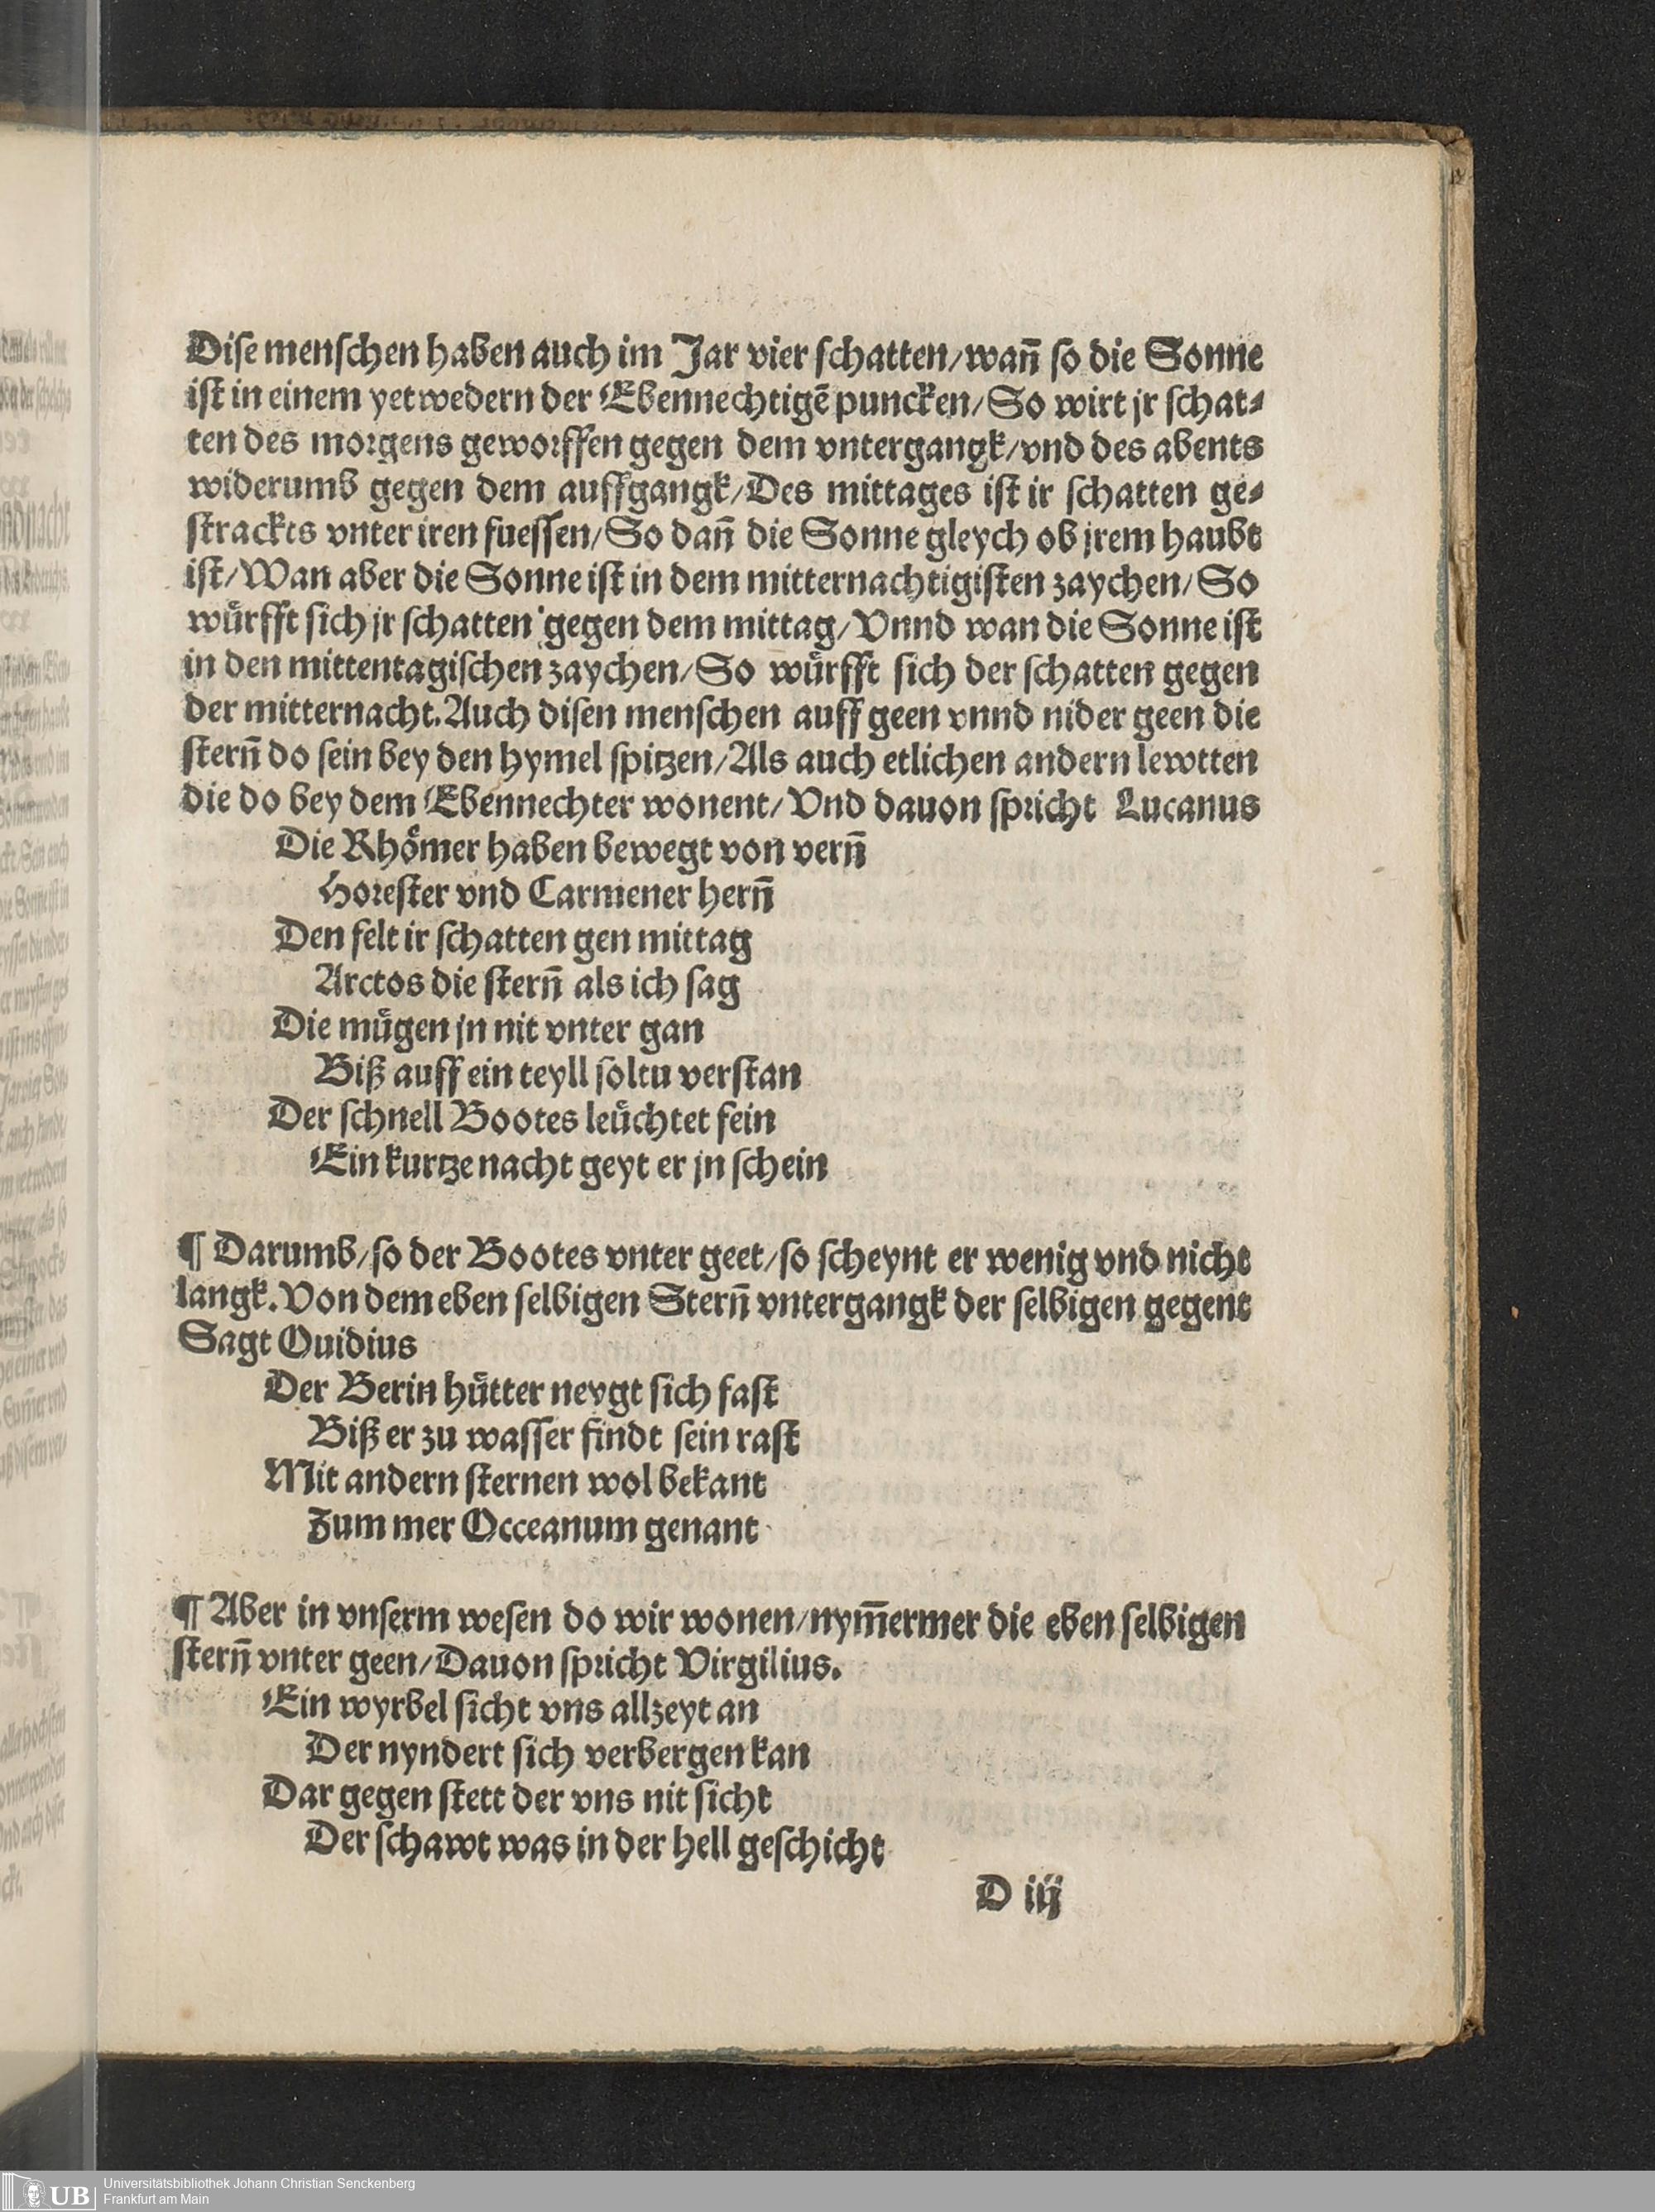 Diſe menſchen haben auch im Jar vier ſchatten/wañ ſo die Sonne
iſt in einem yetwedern der Ebennechtigē puncken/So wirt jr ſchat⸗
ten des morgens geworffen gegen dem vntergangk/vnd des abents
widerumb gegen dem auffgangk/Des mittages iſt ir ſchatten ge⸗
ſtrackts vnter iren fueſſen/So dañ die Sonne gleych ob jrem haubt
iſt/Wan aber die Sonne iſt in dem mitternachtigiſten zaychen/So
wuͤrfft ſich jr ſchatten gegen dem mittag/Vnnd wan die Sonne iſt
in den mittentagiſchen zaychen/So wuͤrfft ſich der ſchatten gegen
der mitternacht.Auch diſen menſchen auff geen vnnd nider geen die
ſterñ do ſein bey den hymel ſpitzen/Als auch etlichen andern lewtten
die do bey dem Ebennechter wonent/Vnd dauon ſpricht Lucanus
Die Rhoͤmer haben bewegt von verñ
Horeſter vnd Carmener herñ
Den felt ir ſchatten gen mittag
Arctos die ſterñ als ich ſag
Die muͤgen jn nit vnter gan
Biß auff ein teyll ſoltu verſtan
Der ſchnell Bootes leuͤchtet fein
Ein kurtze nacht geyt er jn ſchein
¶ Darumb/ſo der Bootes vnter geet/ſo ſcheynt er wenig vnd nicht
langk.Von dem eben ſelbigen Sterñ vntergangk der ſelbigen gegent
Sagt Ouidius
Der Berin huͤtter neygt ſich faſt
Biß er zu waſſer findt ſein raſt
Mit andern ſternen wol bekant
Zum mer Occeanum genant
¶ Aber in vnſerm weſen do wir wonen/nym̄ermer die eben ſelbigen
ſterñ vnter geen/Dauon ſpricht Virgilius.
Ein wyrbel ſicht vns allzeyt an
Der nyndert ſich verbergen kan
Dar gegen ſtett der vns nit ſicht
Der ſchawt was in der hell geſchicht
D iij
UB
Universitätsbibliothek Johann Christian Senckenberg
Frankfurt am Main